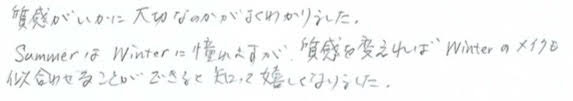 質感がいかに大切なのかがよくわかりました。
Summerは Winterに憧れますが、質感を変えれば Winterのメイクも
似合わせることができると知って嬉しくなりました。